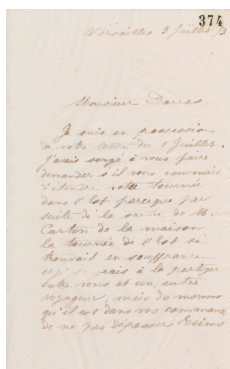 374
Versailles 3 Juillet 73
Monsieur Darras
Je suis en possession
de votre lettre du 1 Juillet.
J'avais songé à vous faire
demander s'il vous convenait
d'étendre votre tournée
dans l'Est parceque par
suite de la sortie de M.
Carton de la maison
la tournée de l'Est se
trouvait en souffrance
et je pensais à la partager
entre vous et un autre
voyageur, mais du moment
qu'il est dans vos convenances
de ne pas dépasser Reims